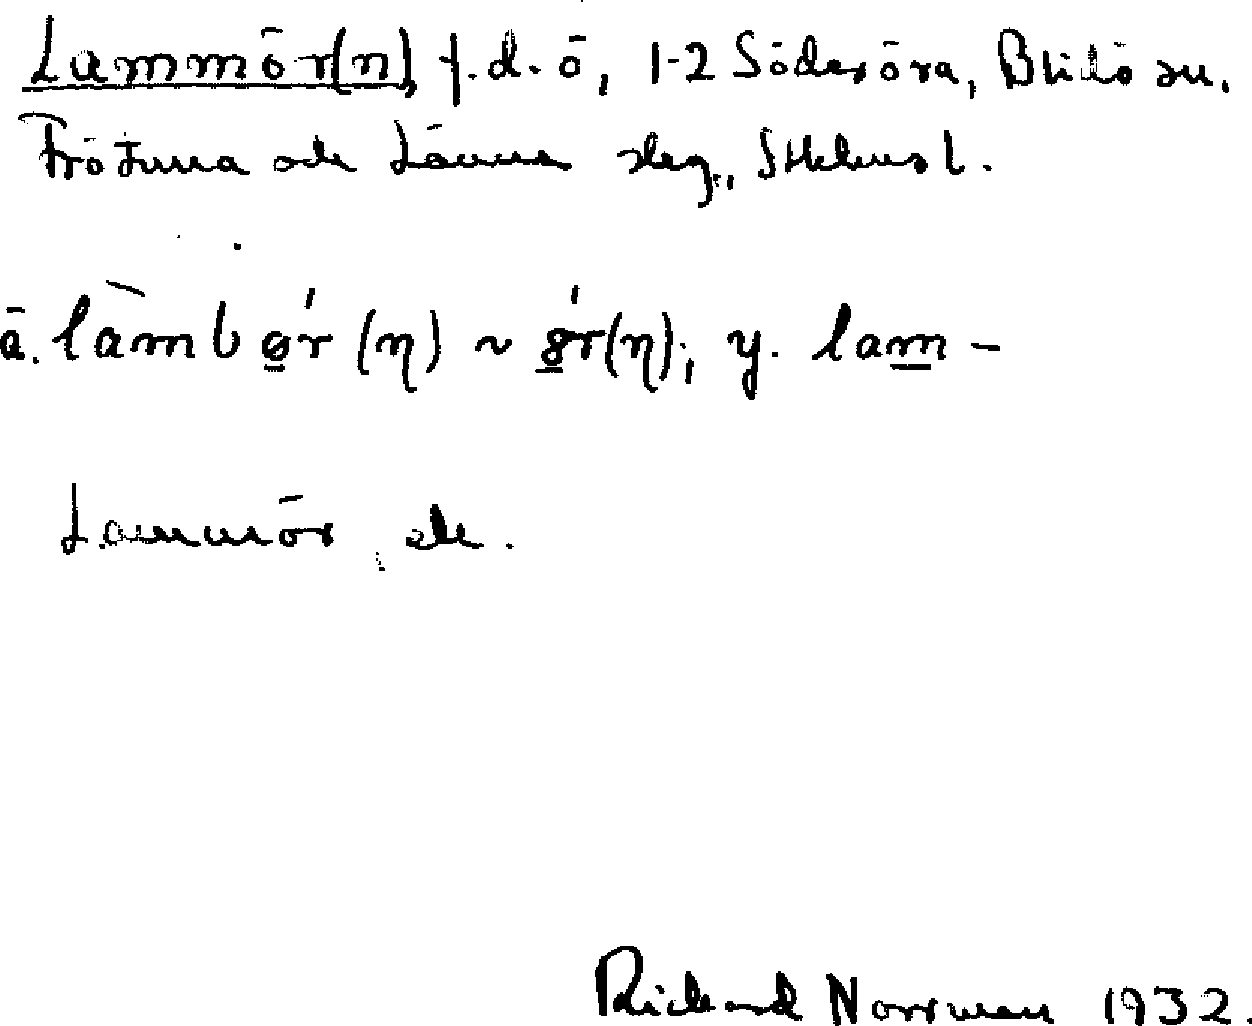 Lammör(n), f.d. ö, 1-2 Söderöra, Blidö sn.
Frötuna och Länna slag, Sthlms l.
ä. làmbǿr (η) ~ ǿr(η); y. lam -
Lammör, ek.
Rickard Norrman 1932.